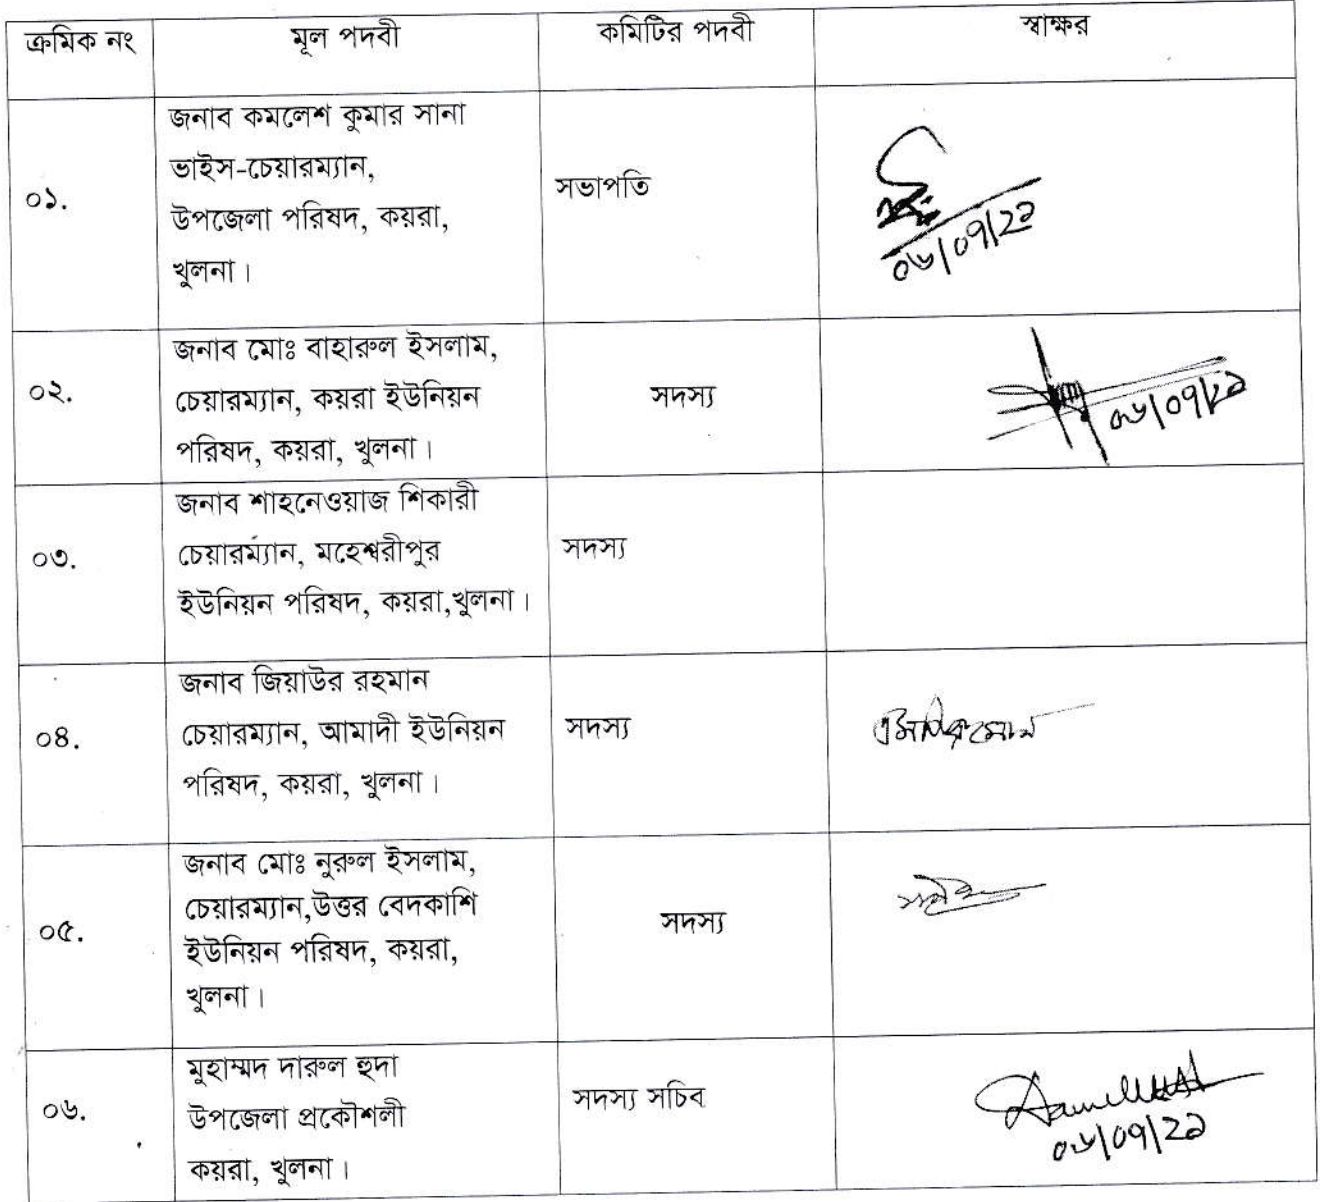 ক্রমিক নং মূল পদবী কমিটির পদবী স্বাক্ষর
০১.
জনাব কমলেশ কুমার সানা
ভাইস-চেয়ারম্যান,
উপজেলা পরিষদ, কয়রা,
খুলনা।
সভাপতি
০৬/০৭/২২
০২.
জনাব মোঃ বাহারুল ইসলাম,
চেয়ারম্যান, কয়রা ইউনিয়ন
পরিষদ, কয়রা, খুলনা।
সদস্য
০৩.
জনাব শাহনেওয়াজ শিকারী
চেয়ারম্যান, মহেশ্বরীপুর
ইউনিয়ন পরিষদ, কয়রা,খুলনা।
সদস্য
০৪.
জনাব জিয়াউর রহমান
চেয়ারম্যান, আমাদী ইউনিয়ন
পরিষদ, কয়রা, খুলনা।
সদস্য
০৫.
জনাব মোঃ নুরুল ইসলাম,
চেয়ারম্যান,উত্তর বেদকাশি
ইউনিয়ন পরিষদ, কয়রা,
খুলনা।
সদস্য
০৬.
মুহাম্মদ দারুল হুদা
উপজেলা প্রকৌশলী
কয়রা, খুলনা।
সদস্য সচিব